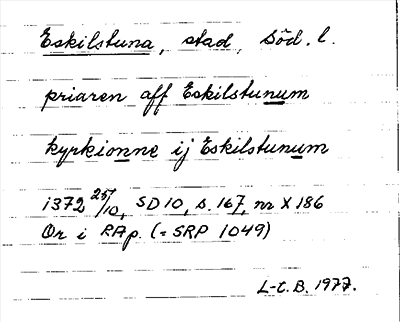 Eskilstuna, stad, Söd. l.
priaren aff Eskilstunum
kyrkionne ij Eskilstunum
1372 25/10, SD 10, s. 167, nr X 186
Or i RAp. (= SRP 1049)
L-t. B. 1977.